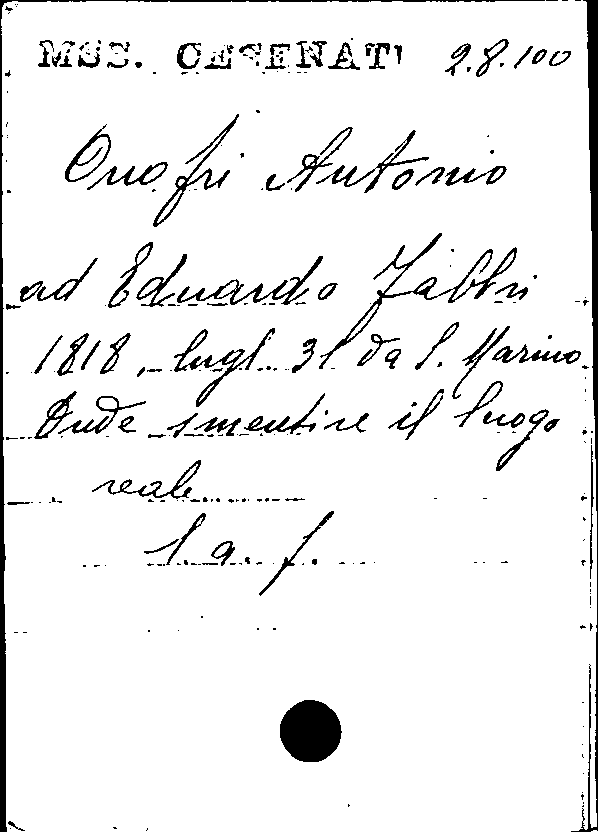 MSS. CESENATI 2.8.100
Onofri Antonio
ad Eduardo Fabbri
1818, lugl. 31 da S. Marino
Onde smentire il luogo
reale
l. a. f.